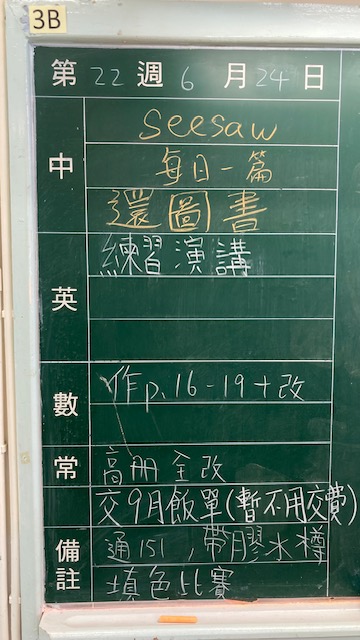 3B
第 22 週 6 月 24 日
中
seesaw
每日一篇
還圖書
英
練習演講
數
作p.16-19+改
常
高冊全改
交9月飯單(暫不用交費)
備註
通151，帶膠水樽
填色比賽